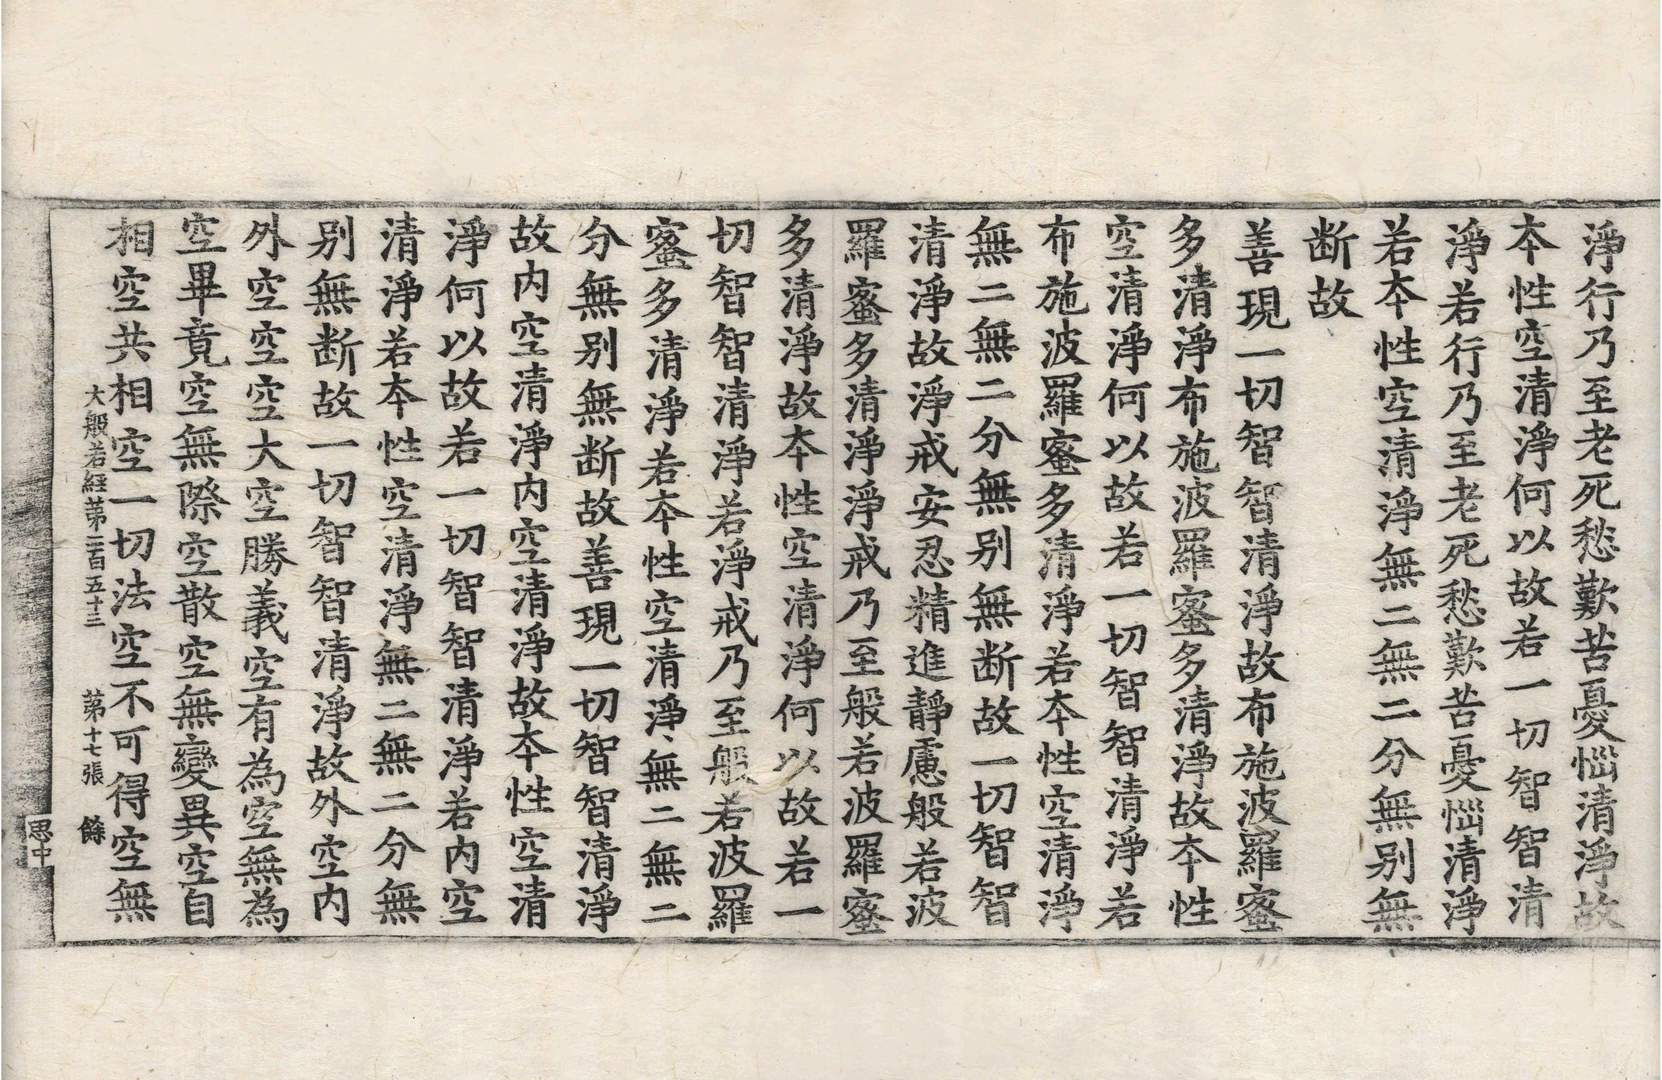 淨行乃至老死愁歎苦憂惱清淨故
夲性空清淨何以故若一切智智清
淨若行乃至老死愁歎苦憂惱清淨
若夲性空清淨無二無二分無别無
断故
善現一切智智清淨故布施波羅蜜
多清淨布施波羅蜜多清淨故夲性
空清淨何以故若一切智智清淨若
布施波羅蜜多清淨若夲性空清淨
無二無二分無别無断故一切智智
清淨故淨戒安忍精進靜慮般若波
羅蜜多清淨淨戒乃至般若波羅蜜
多清淨故夲性空清淨何以故若一
切智智清淨若淨戒乃至般若波羅
蜜多清淨若夲性空清淨無二無二
分無别無断故善現一切智智清淨
故内空清淨内空清淨故夲性空清
淨何以故若一切智智清淨若内空
清淨若夲性空清淨無二無二分無
别無断故一切智智清淨故外空内
外空空空大空勝義空有為空無為
空畢竟空無際空散空無變異空自
相空共相空一切法空不可得空無
大般若経苐二百五十三 苐十七張 餘
思中